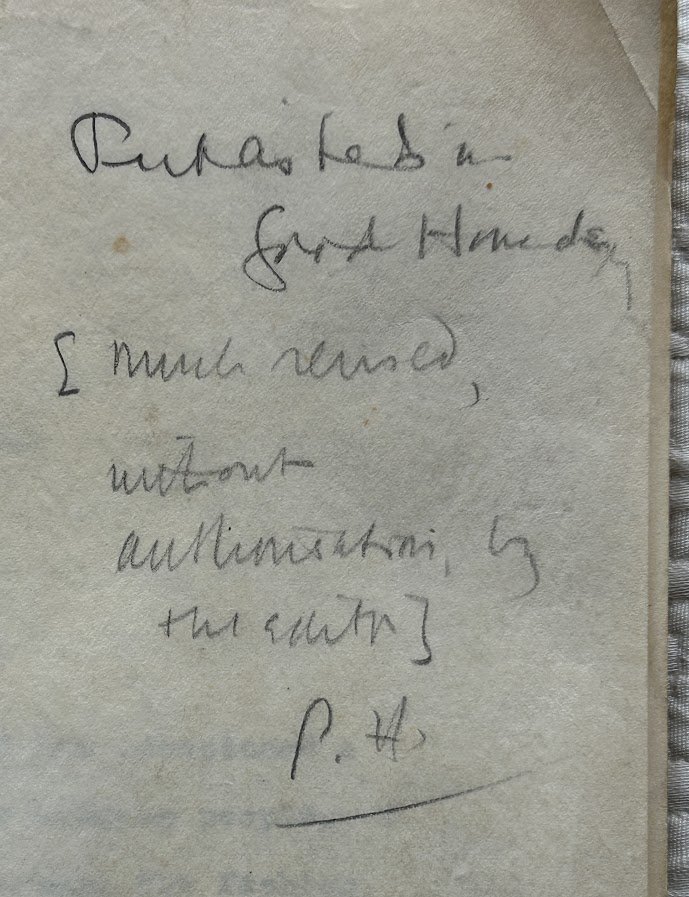 Published in
Good Housekeeping
[ much revised,
without
authorisation, by
the editor]
P. H.